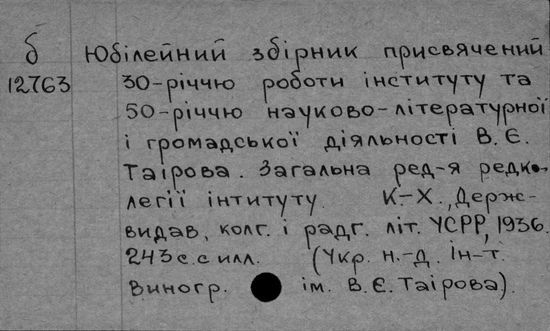 б Юбілейний збірник присвячений
12763 30-річчю роботи інституту та
50-річчю науково-літературної
і громадської діяльності В. Є.
Таїрова. Загальна ред-я редко-
легії інтитуту. К.-Х., Держ-
видав, колг. і радг. літ. УСРР, 1936.
243 с. с илл. (Укр. н.-д. Ін-т.
Виногр. ім. В. Є. Таїрова).